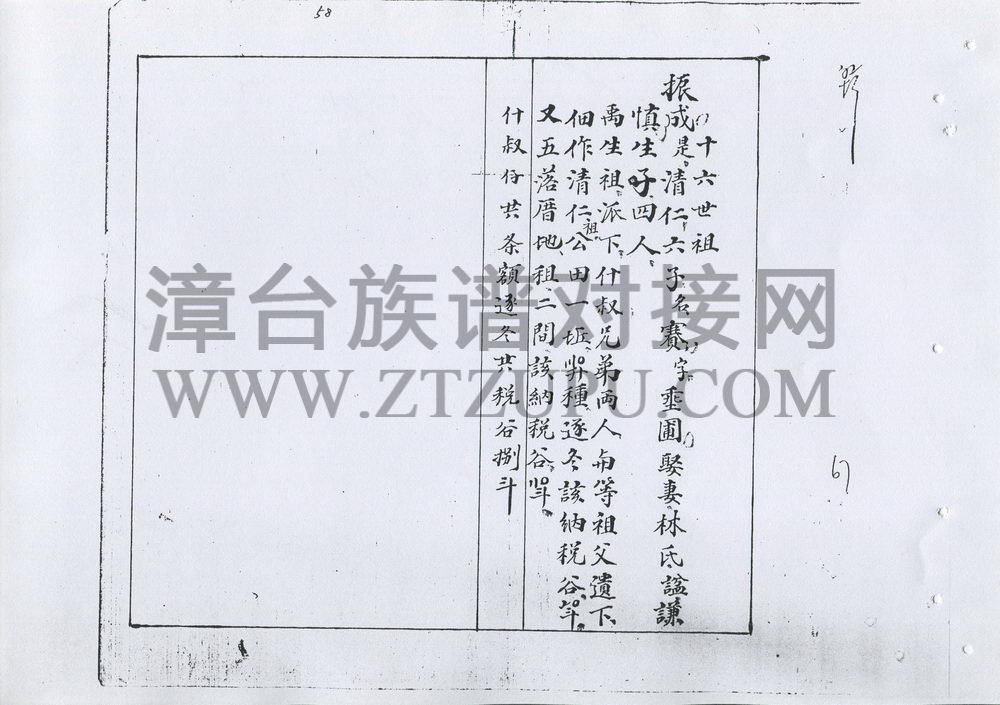 58
十六世祖
振成是清仁六子名賽字垂圃娶妻林氏諡謙
慎生子四人
禹生祖派下什叔兄弟両人因等祖父遺下
佃作清仁祖公田一坵种種逐冬該納税谷
又五落厝地租二間該納税谷
什叔份共条額逐冬共税谷捌斗
67
漳台族谱对接网
WWW.ZTZUPU.COM